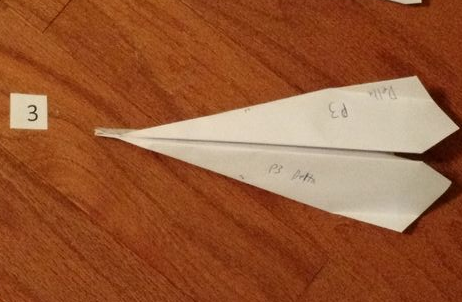 3
Delta
P3
P3 Delta